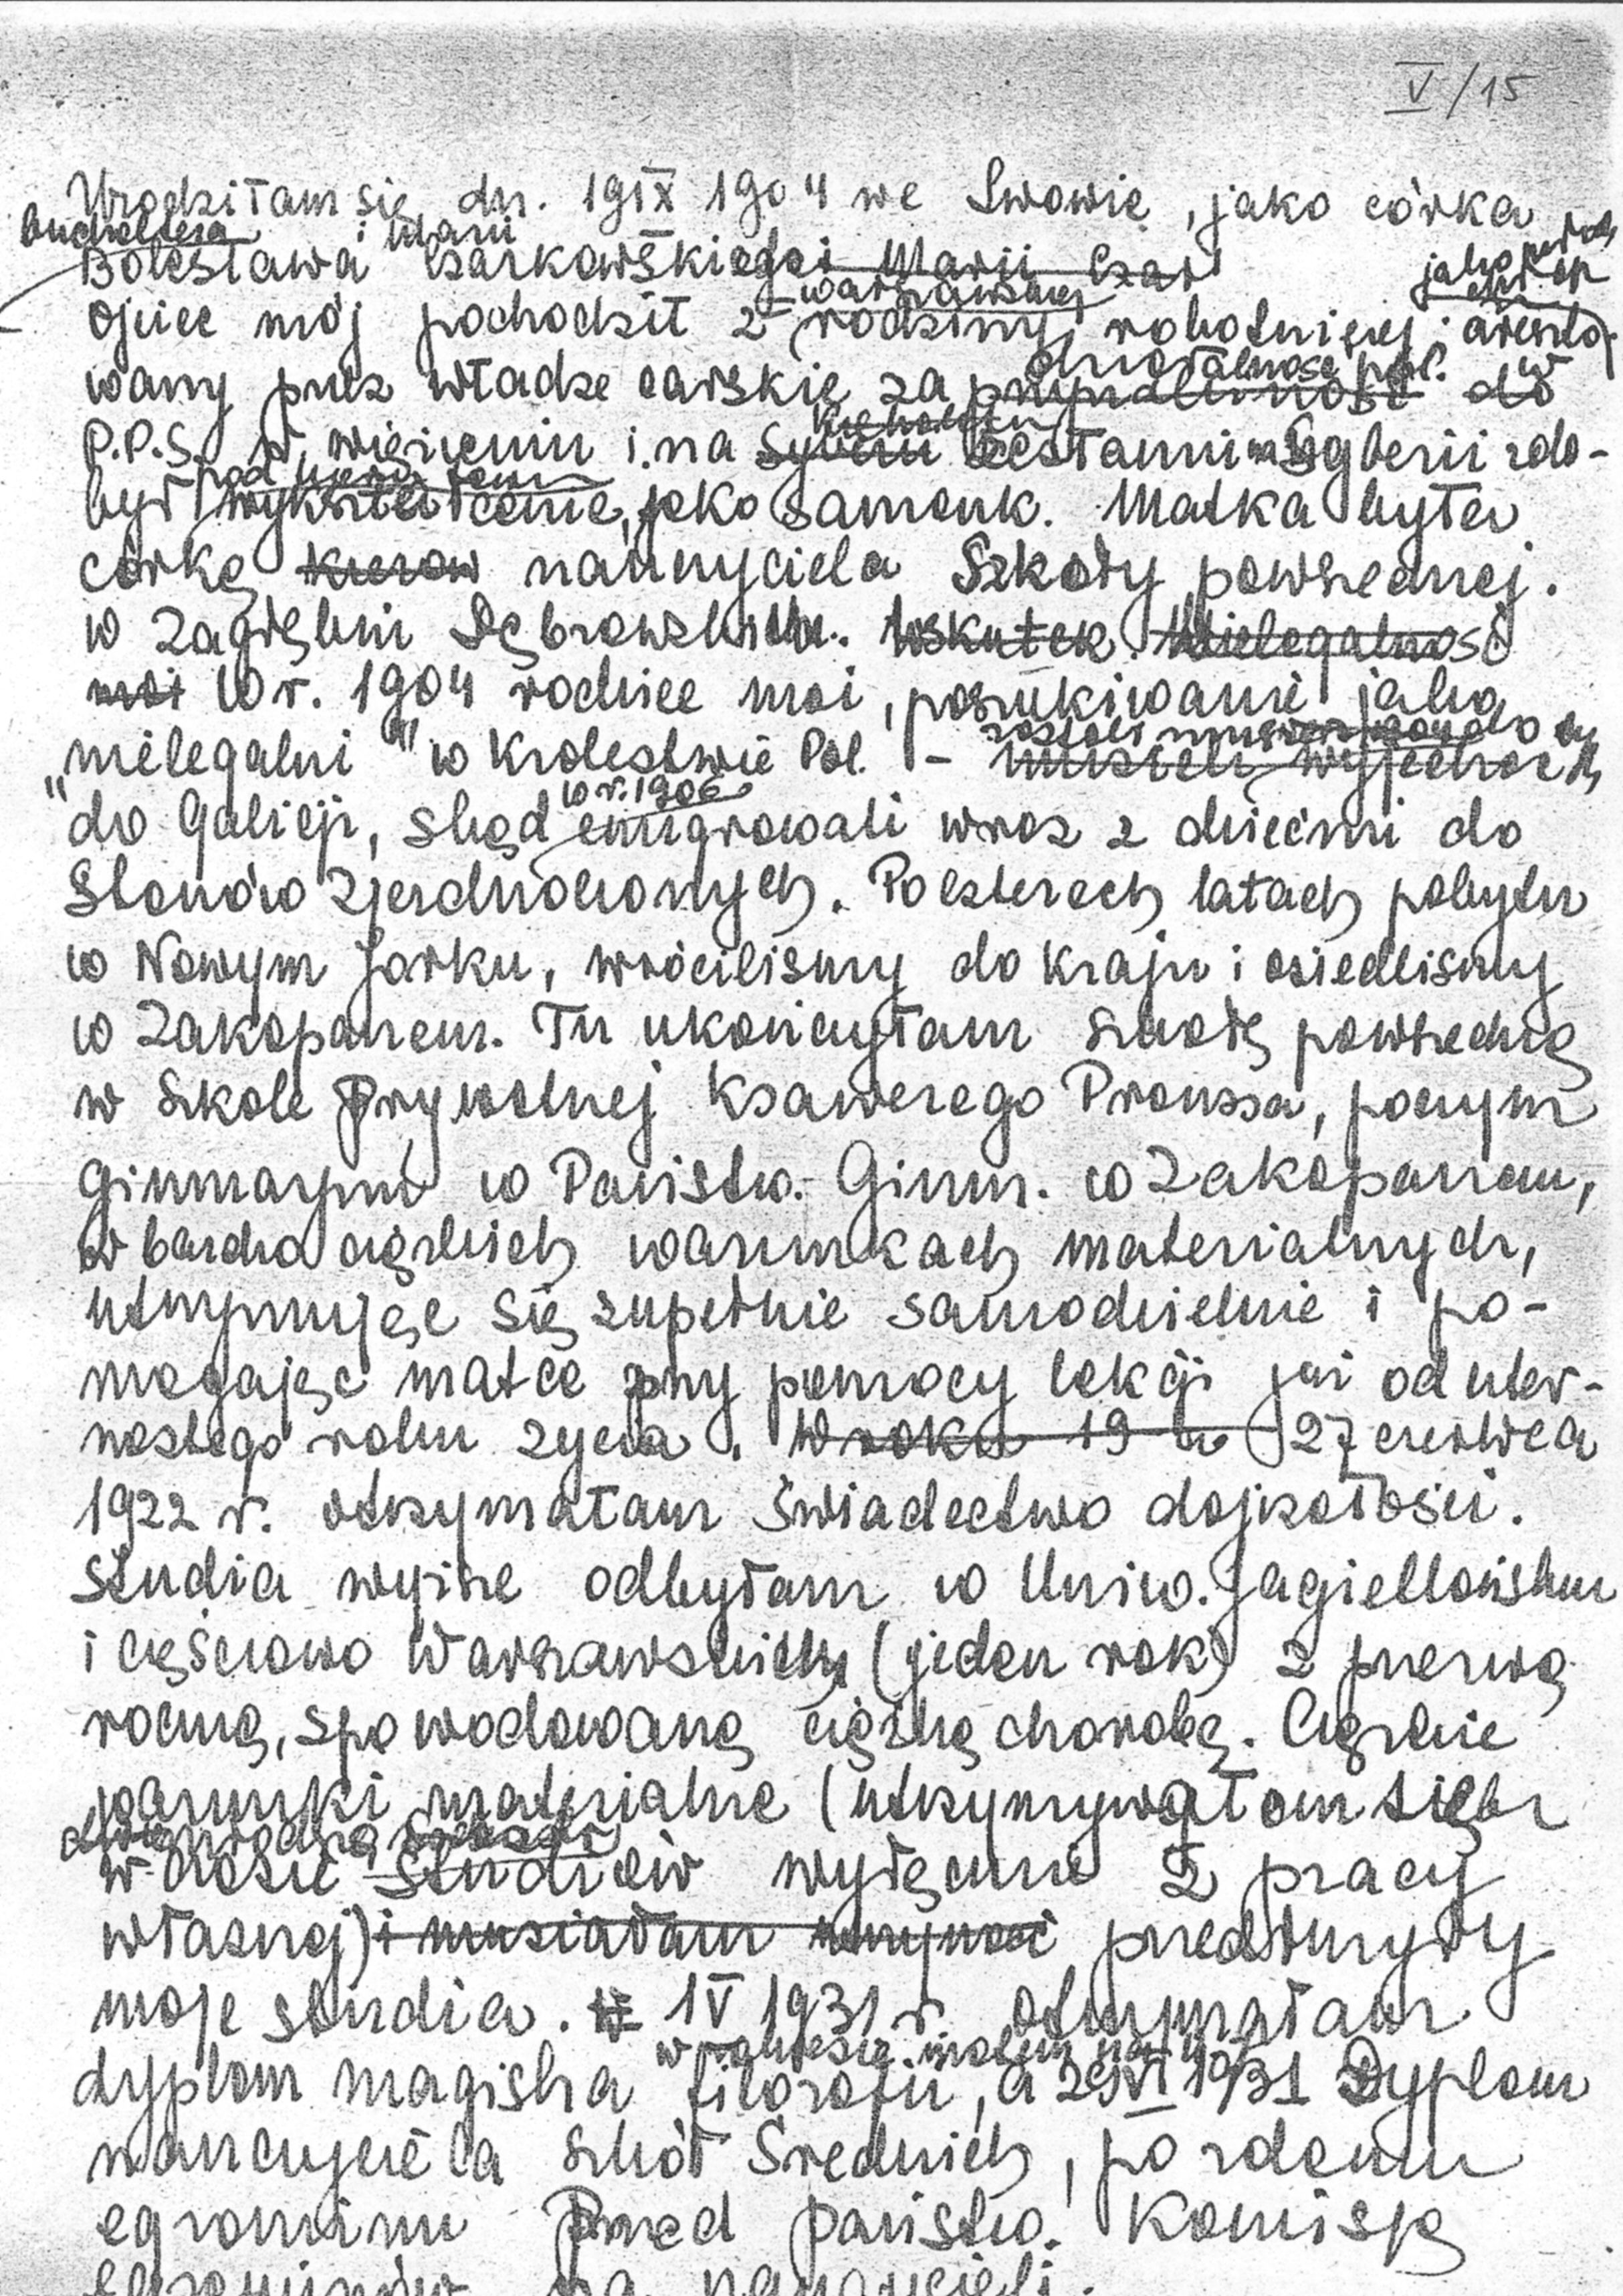 V/15
Urodziłam się dn. 19 IX 1904 we Lwowie, jako córka
buchaltera i Marii
Bolesława Czarkowskiego i Marii Czar
warszawskiej jako
Ojciec mój pochodził z rodziny robotniczej. areszto-
działalność pol. w
wany przez władze carskie za przynależność do
P.P.S. w więzieniu i na Sybiru zesłaniu na Syberii zdo-
był wykształcenie, jako samouk. Matka była
córką kierow nauczyciela Szkoły powszechnej.
w Zagłębiu Dąbrowskim. Wskutek Nielegalność
moi W r. 1904 rodzice moi, poszukiwani jako
"nielegalni" w Królestwie Pol. – musieli wyjechać
w r. 1906
do Galicji, skąd emigrowali wraz z dziećmi do
Stanów Zjednoczonych. Po czterech latach pobytu
w Nowym Jorku, wróciliśmy do kraju i osiedliśmy
w Zakopanem. Tu ukończyłam szkołę powszechną
w Szkole Prywatnej Ksawerego Praussa, poczym
Gimnazjum w Państw. Gimn. w Zakopanem,
w bardzo ciężkich warunkach materialnych,
utrzymując się zupełnie samodzielnie i po-
magając matce przy pomocy lekcji już od czter-
nastego roku życia. W roku 19 w 27 czerwca
1922 r. otrzymałam świadectwo dojrzałości.
Studia wyższe odbyłam w Uniw. Jagiellońskim
i częściowo Warszawskim (jeden rok) z przerwą
roczną, spowodowaną ciężką chorobą. Ciężkie
warunki materialne (utrzymywałam siebie
w czasie studiów wyłącznie z pracy
własnej) i musiałam utrzymać przedłużyły
moje studia. 1 V 1931 r. otrzymałam
w zakresie
dyplom magistra filozofii, a 29 VI 1931 Dyplom
nauczyciela szkół Średnich, po zdaniu
egzaminu Przed państw. Komisją
Egzaminów na nauczycieli.